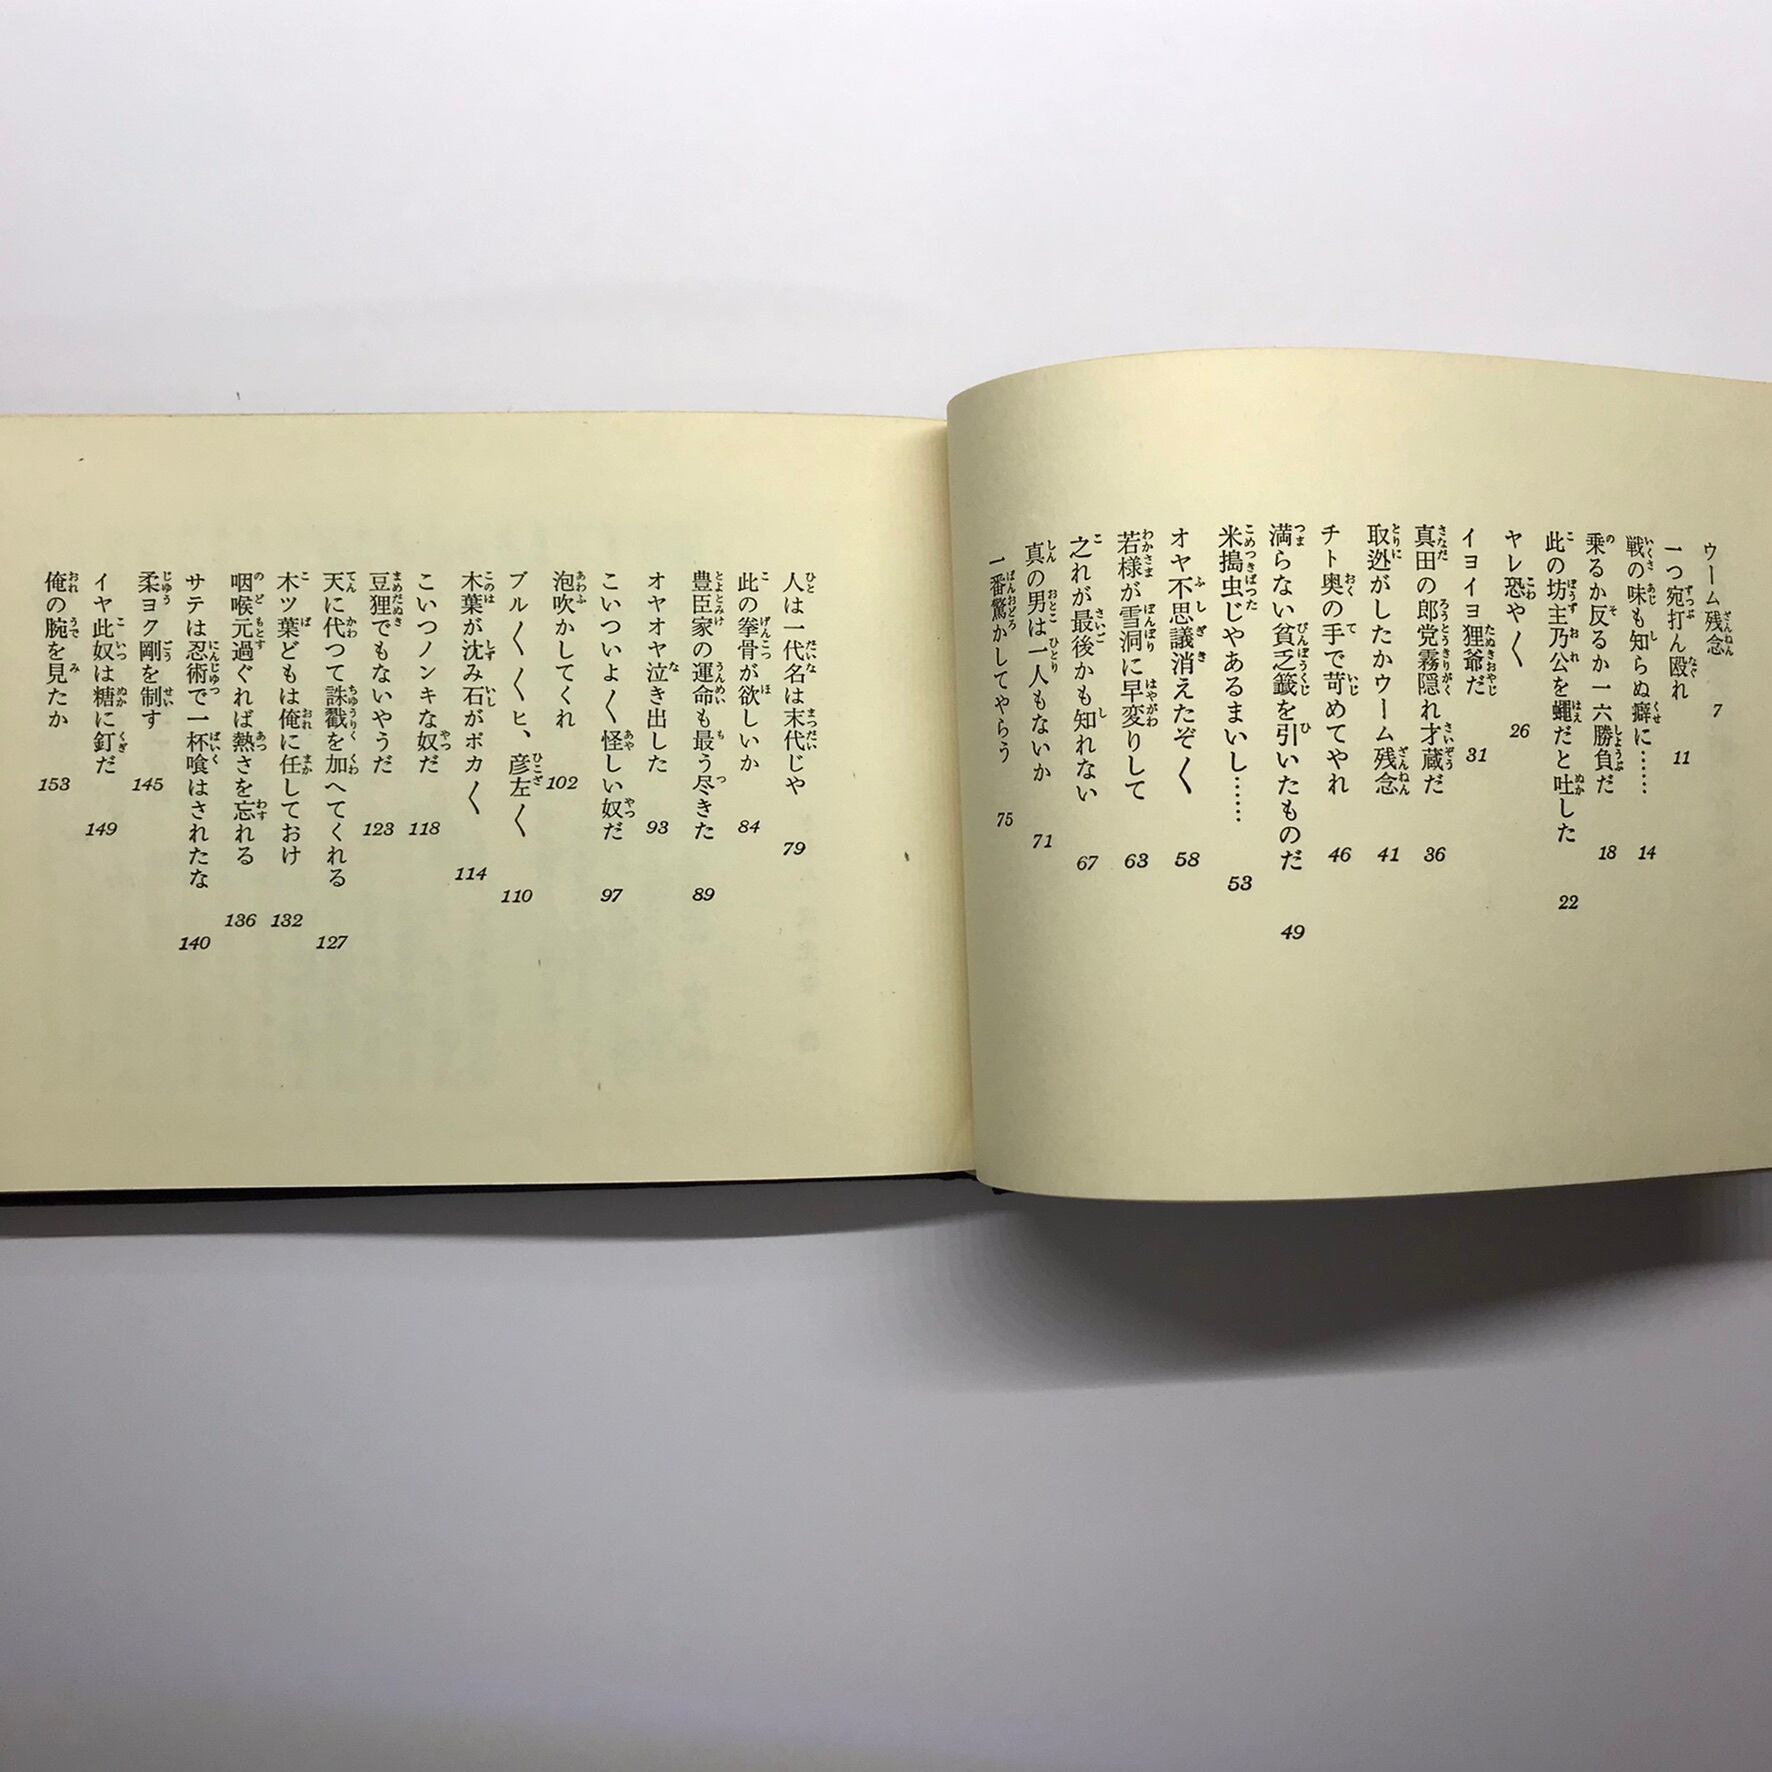 ウーム残念 7
一つ宛打ん殴れ 11
戦の味も知らぬ癖に…… 14
乗るか反るか一六勝負だ 18
此の坊主乃公を蠅だと吐した 22
ヤレ恐や〱 26
イヨイヨ狸爺だ 31
真田の郎党霧隠れ才蔵だ 36
取迯がしたかウーム残念 41
チト奥の手で苛めてやれ 46
満らない貧乏籤を引いたものだ 49
米搗虫じやあるまいし…… 53
オヤ不思議消えたぞ〱 58
若様が雪洞に早変りして 63
之れが最後かも知れない 67
真の男は一人もないか 71
一番驚かしてやらう 75
人は一代名は末代じや 79
此の拳骨が欲しいか 84
豊臣家の運命も最う尽きた 89
オヤオヤ泣き出した 93
こいついよ〱怪しい奴だ 97
泡吹かしてくれ 102
ブル〱〱ヒ、彦左〱 110
木葉が沈み石がボカ〱 114
こいつノンキな奴だ 118
豆狸でもないやうだ 123
天に代つて誅戮を加へてくれる 127
木ツ葉どもは俺に任しておけ 132
咽喉元過ぐれば熱さを忘れる 136
サテは忍術で一杯喰はされたな 140
柔ヨク剛を制す 145
イヤ此奴は糖に釘だ 149
俺の腕を見たか 153